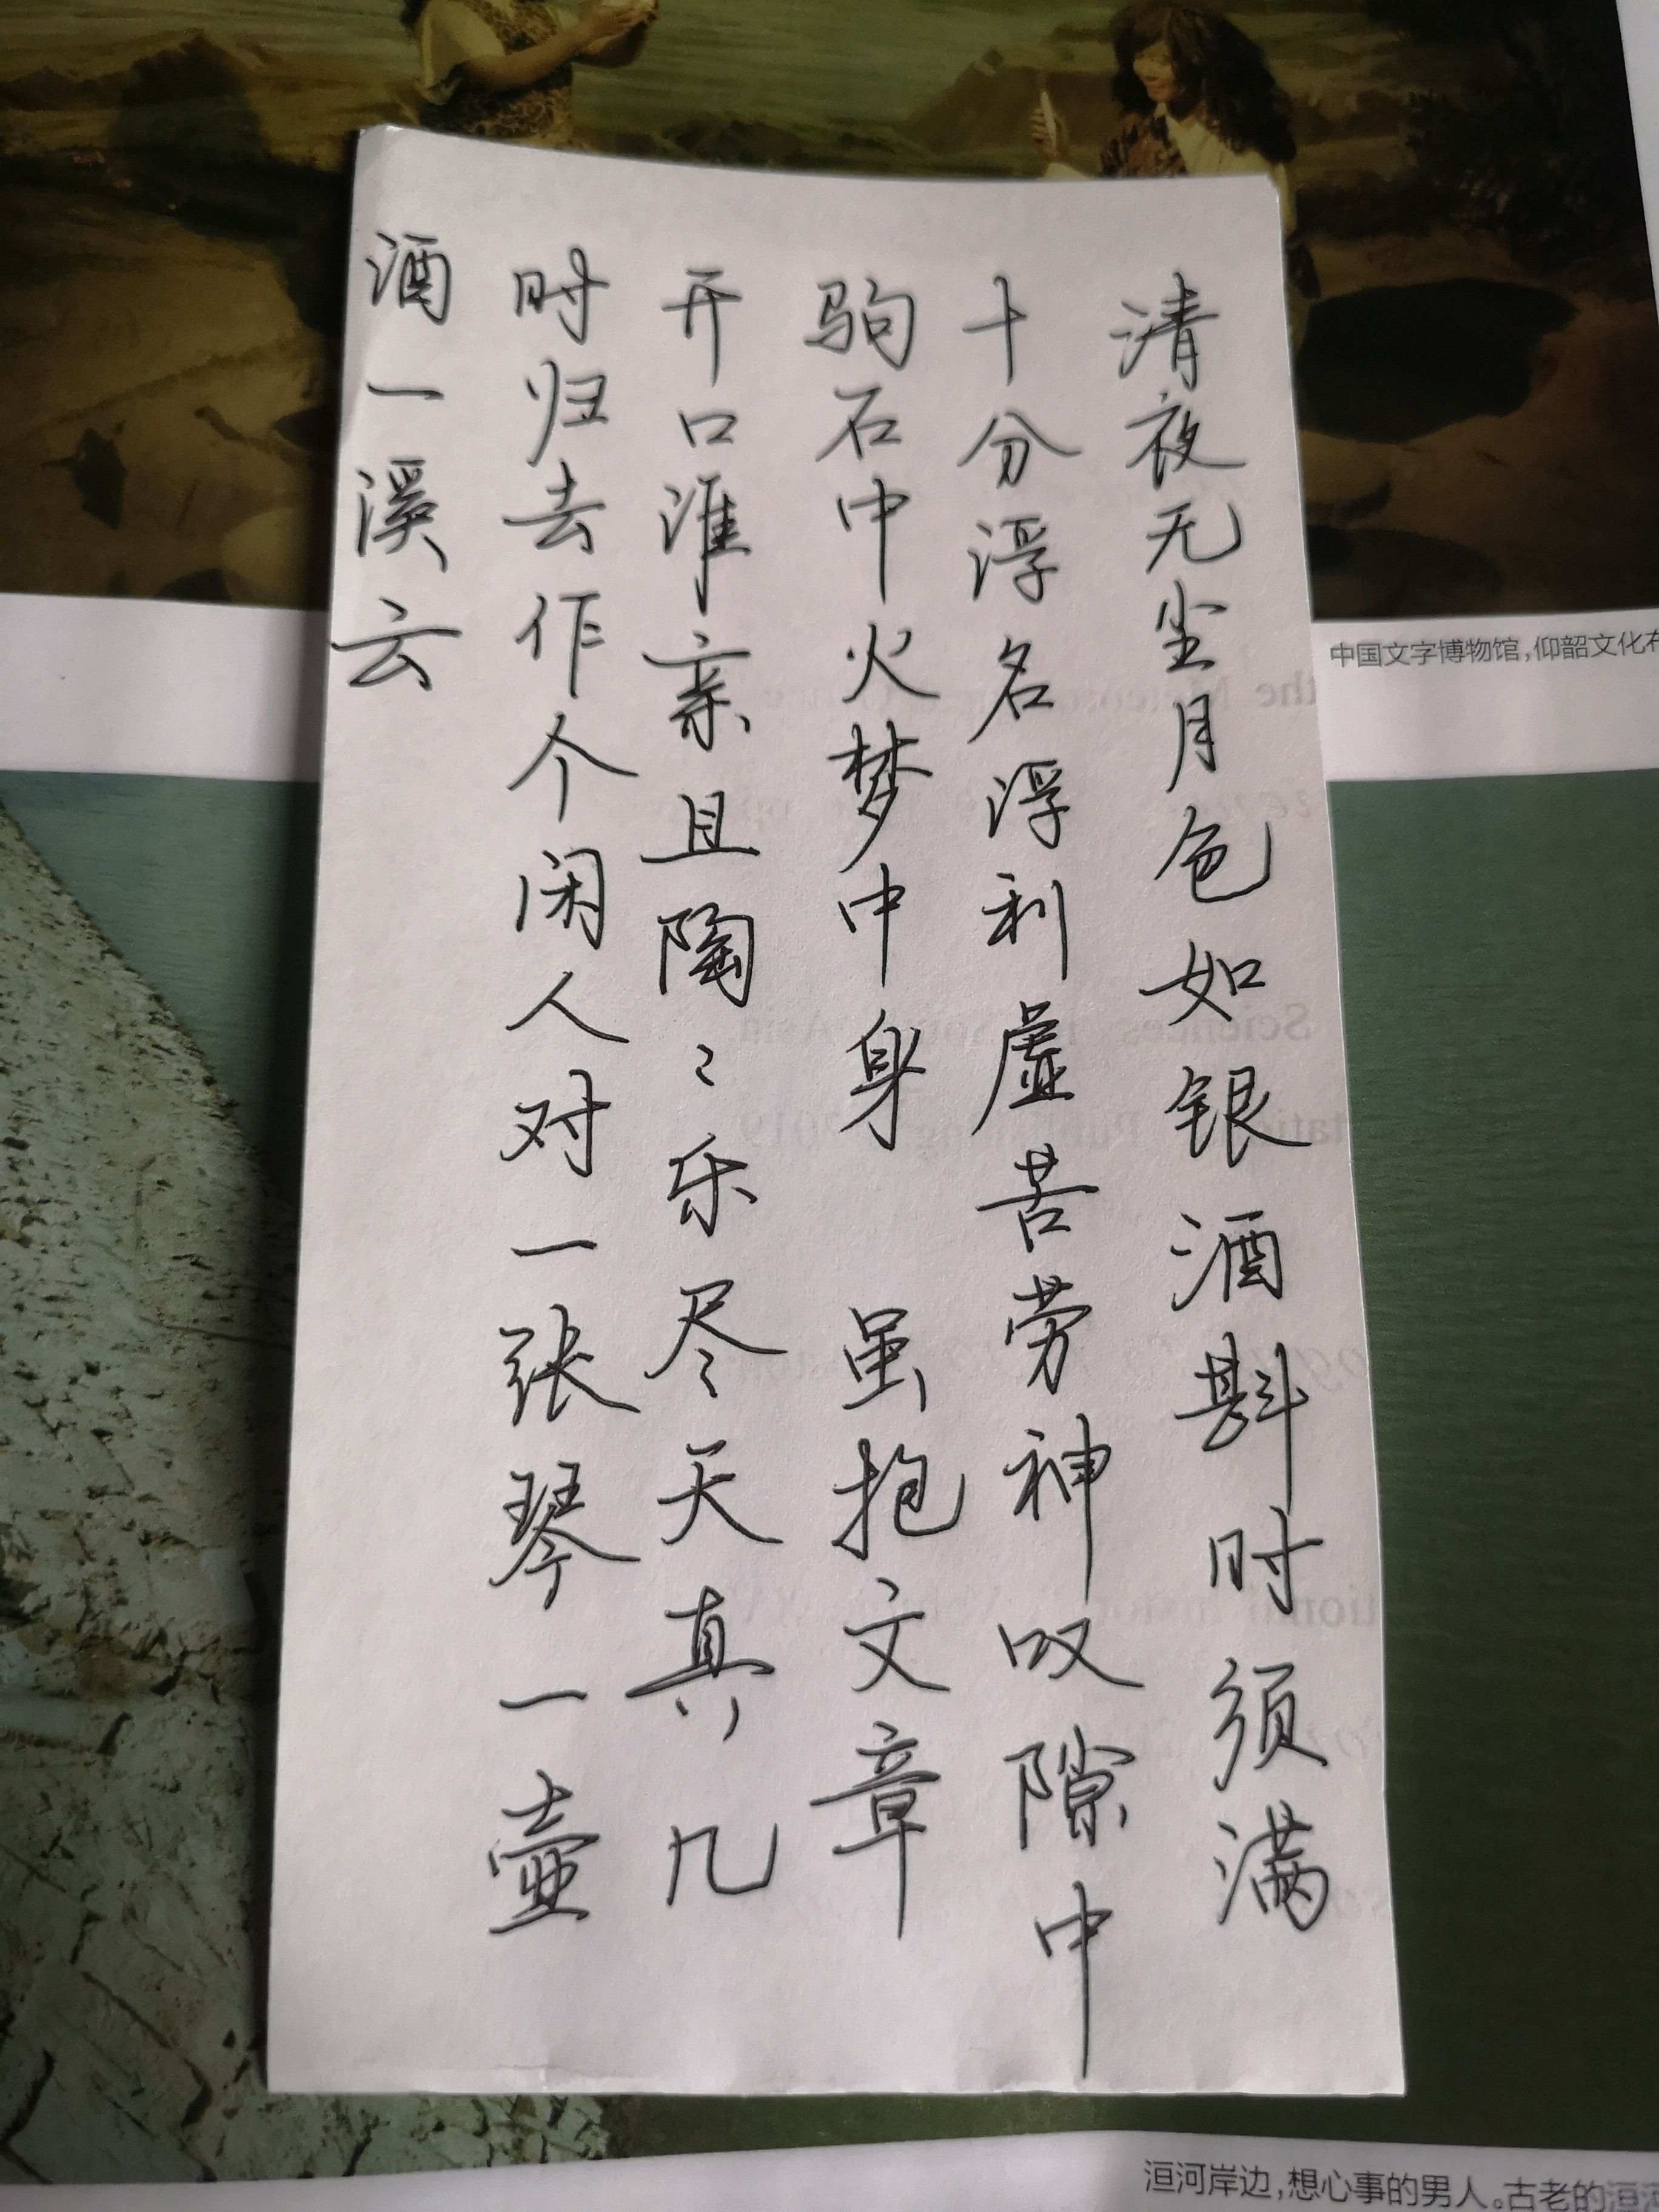 清夜无尘月色如银酒斟时须满
十分浮名浮利虚苦劳神叹隙中
驹石中火梦中身 虽抱文章
开口谁亲且陶〻乐尽天真几
时归去作个闲人对一张琴一壶
酒一溪云
中国文字博物馆，仰韶文化
洹河岸边，想心事的男人。古老的洹河